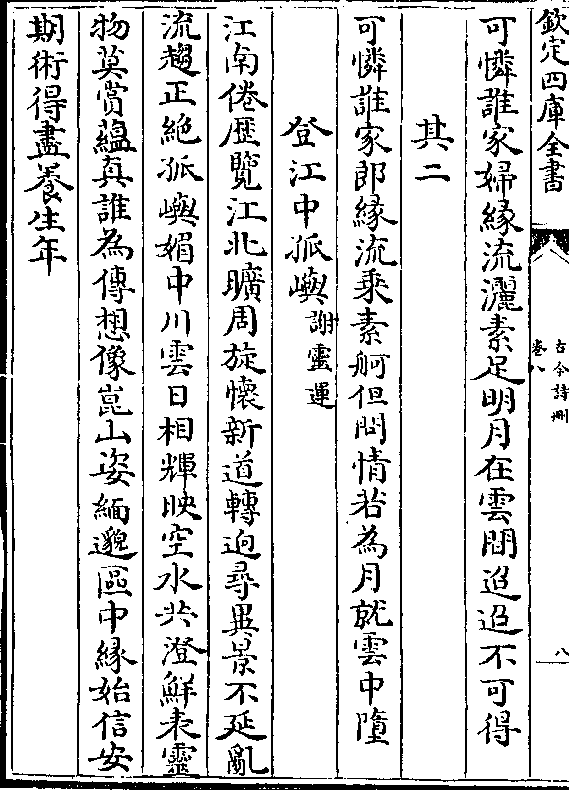 欽定四庫全書
古今詩刪
卷八
八
可憐誰家婦緣流灑素足明月在雲間迢迢不可得
其二
可憐誰家郎緣流乘素舸但問情若為月就雲中墮
登江中孤嶼謝靈運
江南倦歴覽江北曠周旋懷新道轉迥尋異景不延亂
流趨正絶孤嶼媚中川雲日相輝映空水共澄鮮表靈
物莫賞藴真誰為傳想像崑山姿緬邈區中緣始信安
期術得盡養生年